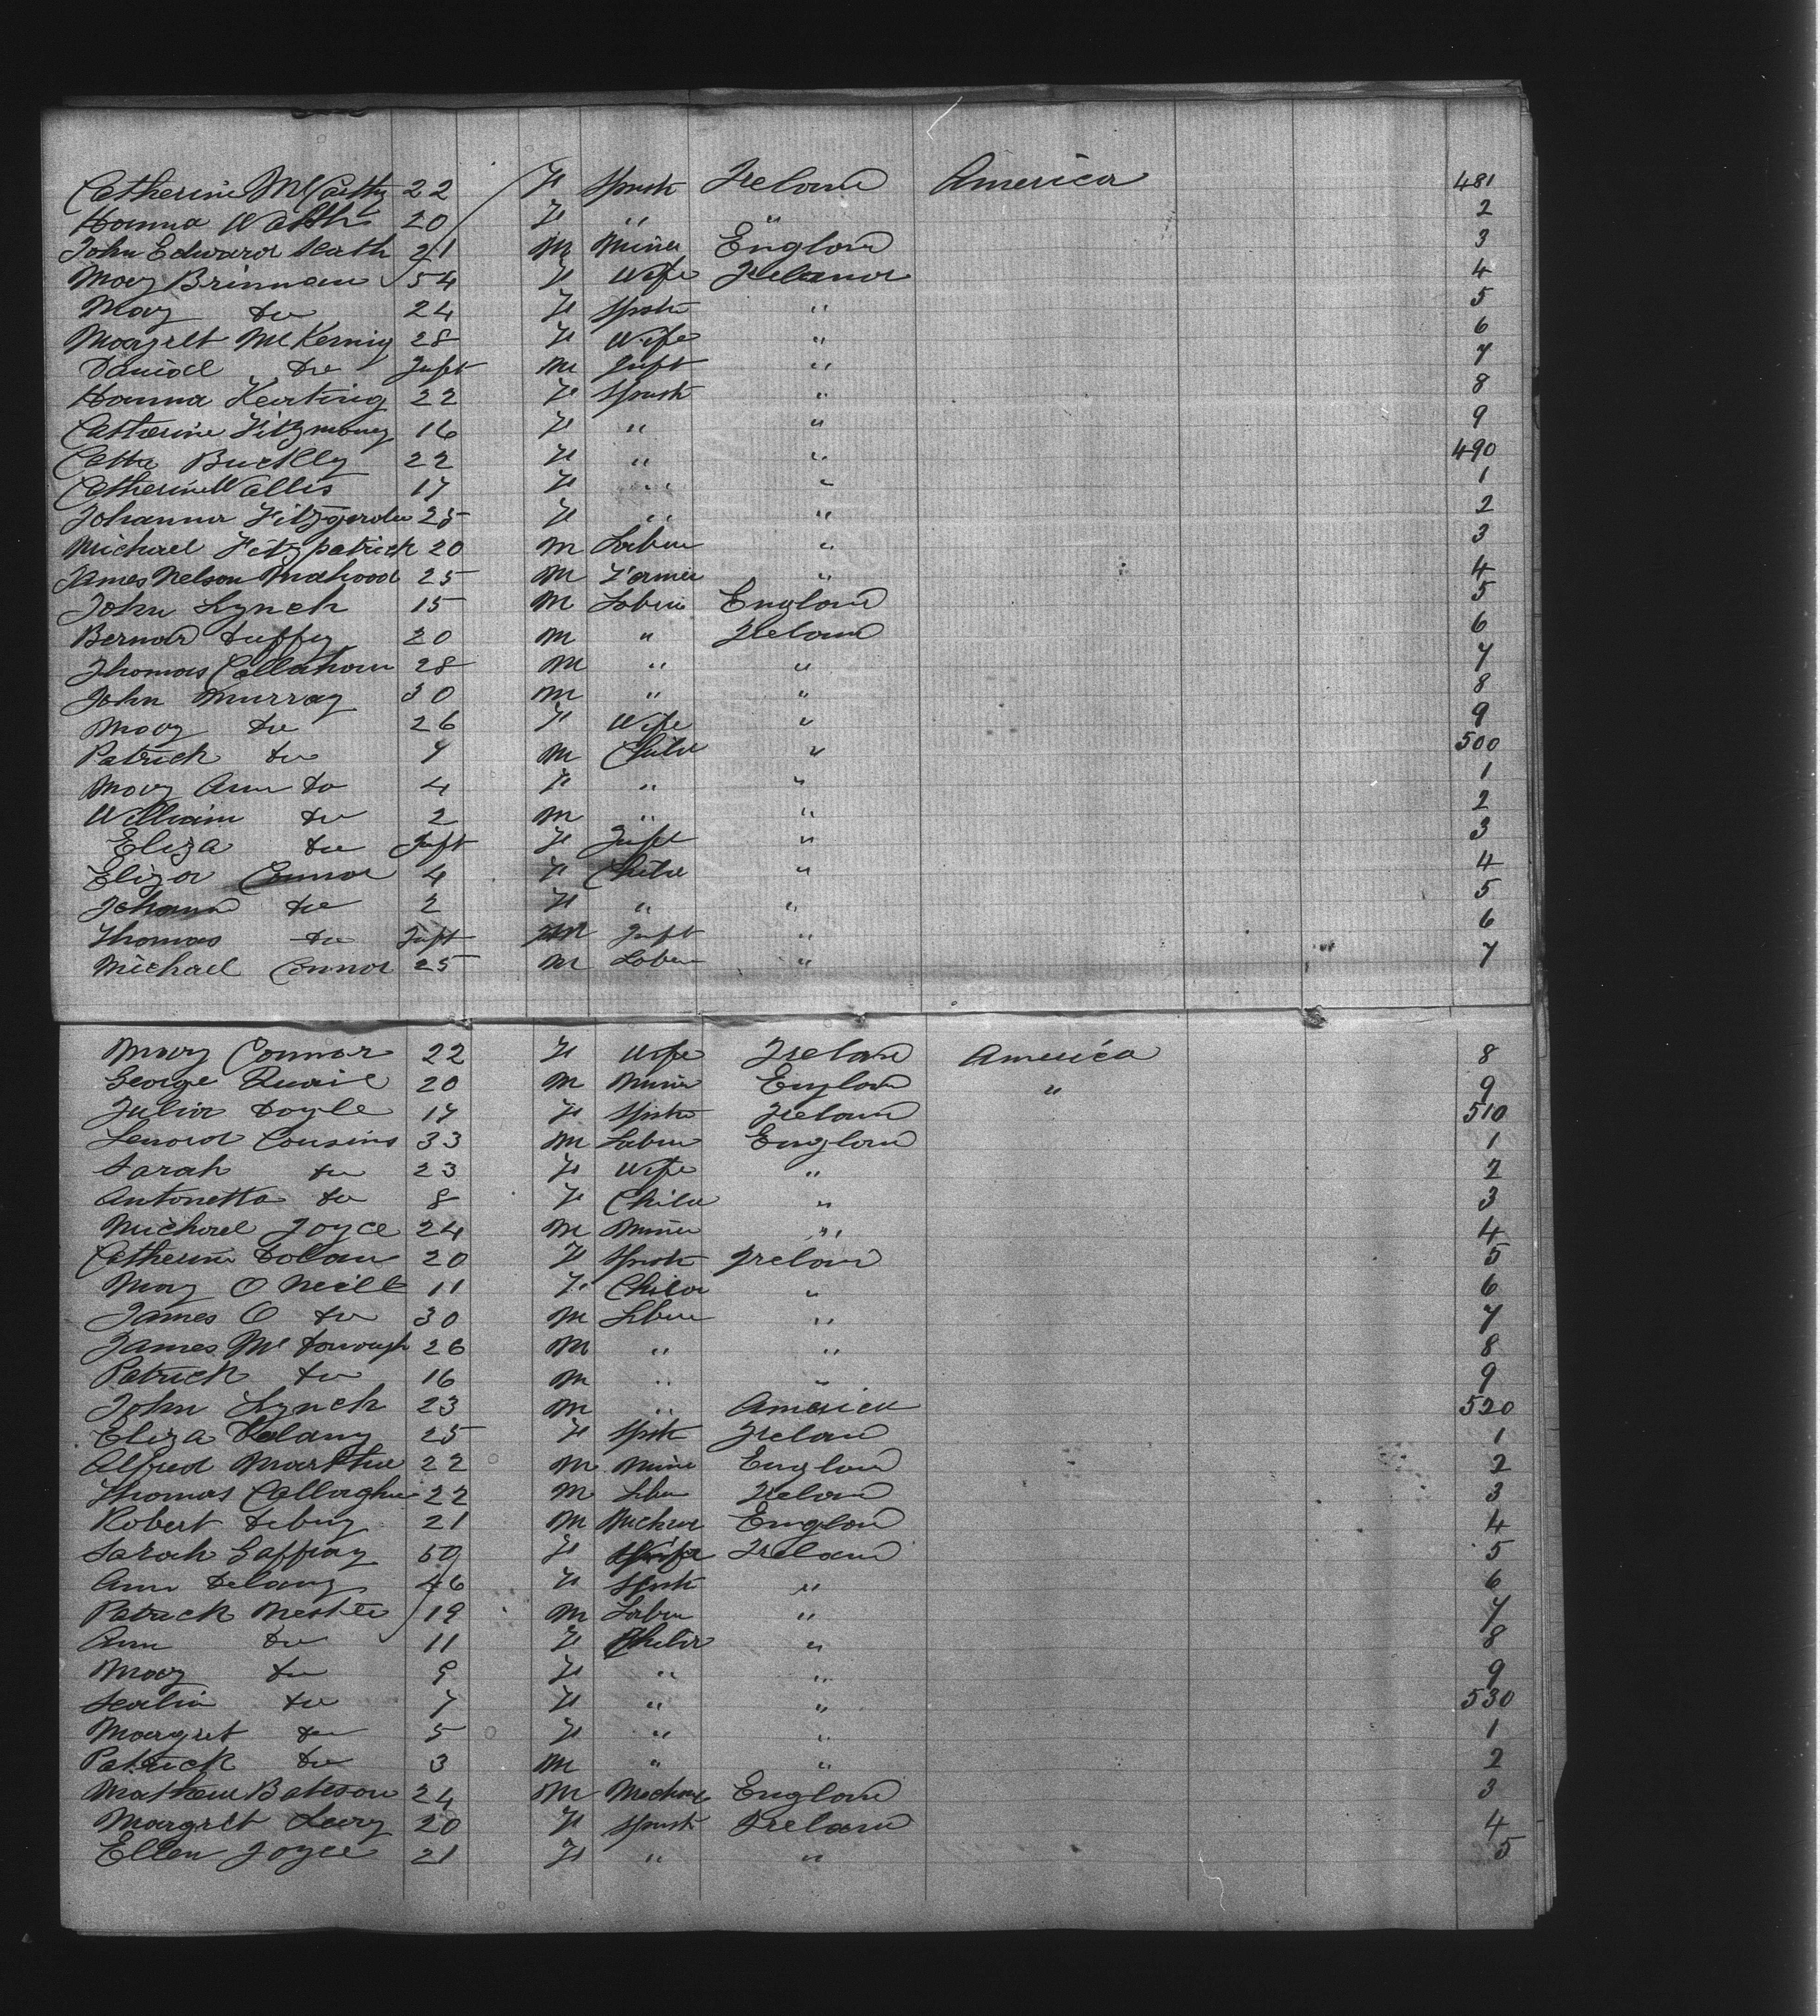 Catherine McCarthy 22 F Spinstr Ireland America 481
Hanna Walsh 20 F " " 2
John Edward Heath 21 M Miner England 3
Mary Brinnan 54 F Wife Ireland 4
Mary do 24 F Spstr " 5
Margret McKernig 28 F Wife " 6
Daniel do Inft M Inft " 7
Hanna Keating 22 F Spinstr " 8
Catherine Fitzmoney 16 F " " 9
Buckley 22 F " " 490
Catherine Wallis 17 F " " 1
Johanna Fitzgerald 25 F " " 2
Michael Fitzpatrick 20 M Labour " 3
James Nelson Mahood 25 M Farmer " 4
John Lynch 15 M Labour England 5
Bernard Duffy 20 M " Ireland 6
Thomas Callahan 28 M " " 7
John Murray 30 M " " 8
Mary do 26 F Wife " 9
Patrick do 7 M Child " 500
Mary Ann do 4 F " " 1
William do 2 M " " 2
Eliza do Inft F Inft " 3
Eliza Connor 4 F Child " 4
Johana do 2 F " " 5
Thomas do Inft M Inft " 6
Michael Connor 25 M Labour " 7
Mary Connor 22 F Wife Ireland America 8
George Quail 20 M Miner England " 9
Julia Doyle 17 F Spstr Ireland 510
Lenord Cousins 33 M Labour England 1
Sarah do 23 F Wife " 2
Antonetta do 8 F Child " 3
Michael Joyce 24 M Miner " 4
Catherine Dolan 20 F Spinstr Ireland 5
Mary O Neill 11 F Child " 6
James O do 30 M Lbour " 7
James Mc Donough 26 M " " 8
Patrick do 16 M " " 9
John Lynch 23 M " America 520
Eliza Delany 25 F Spstr Ireland 1
Alfred 22 M Miner England 2
Thomas Callaghan 22 M Lbour Ireland 3
Robert 21 M England 4
Sarah Gaffray 50 F Wife Ireland 5
Ann Delany 46 F Spinstr " 6
Patrick 19 M Labour " 7
Ann do 11 F Child " 8
Mary do 9 F " " 9
do 7 F " " 530
Margret do 5 F " " 1
Patrick do 3 M " " 2
Mathew Bateson 24 M England 3
Margret Leery 20 F Spinstr Ireland 4
Ellen Joyce 21 F " " 5